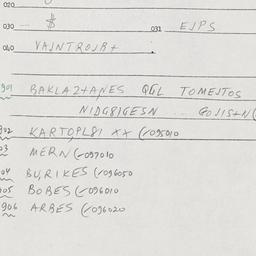 020
030 $ 031 EJPS
040 VAJNTROJB+
901 BAKLAZ+ANES QGL TOMEJTOS
NIDG8IGESN GOJIS+N
902 KARTOPL8I XX (-095010
03 MERN (-097010
04 BU,RIKES (-096050
905 BOBES (-096010
906 ARBES (-096020